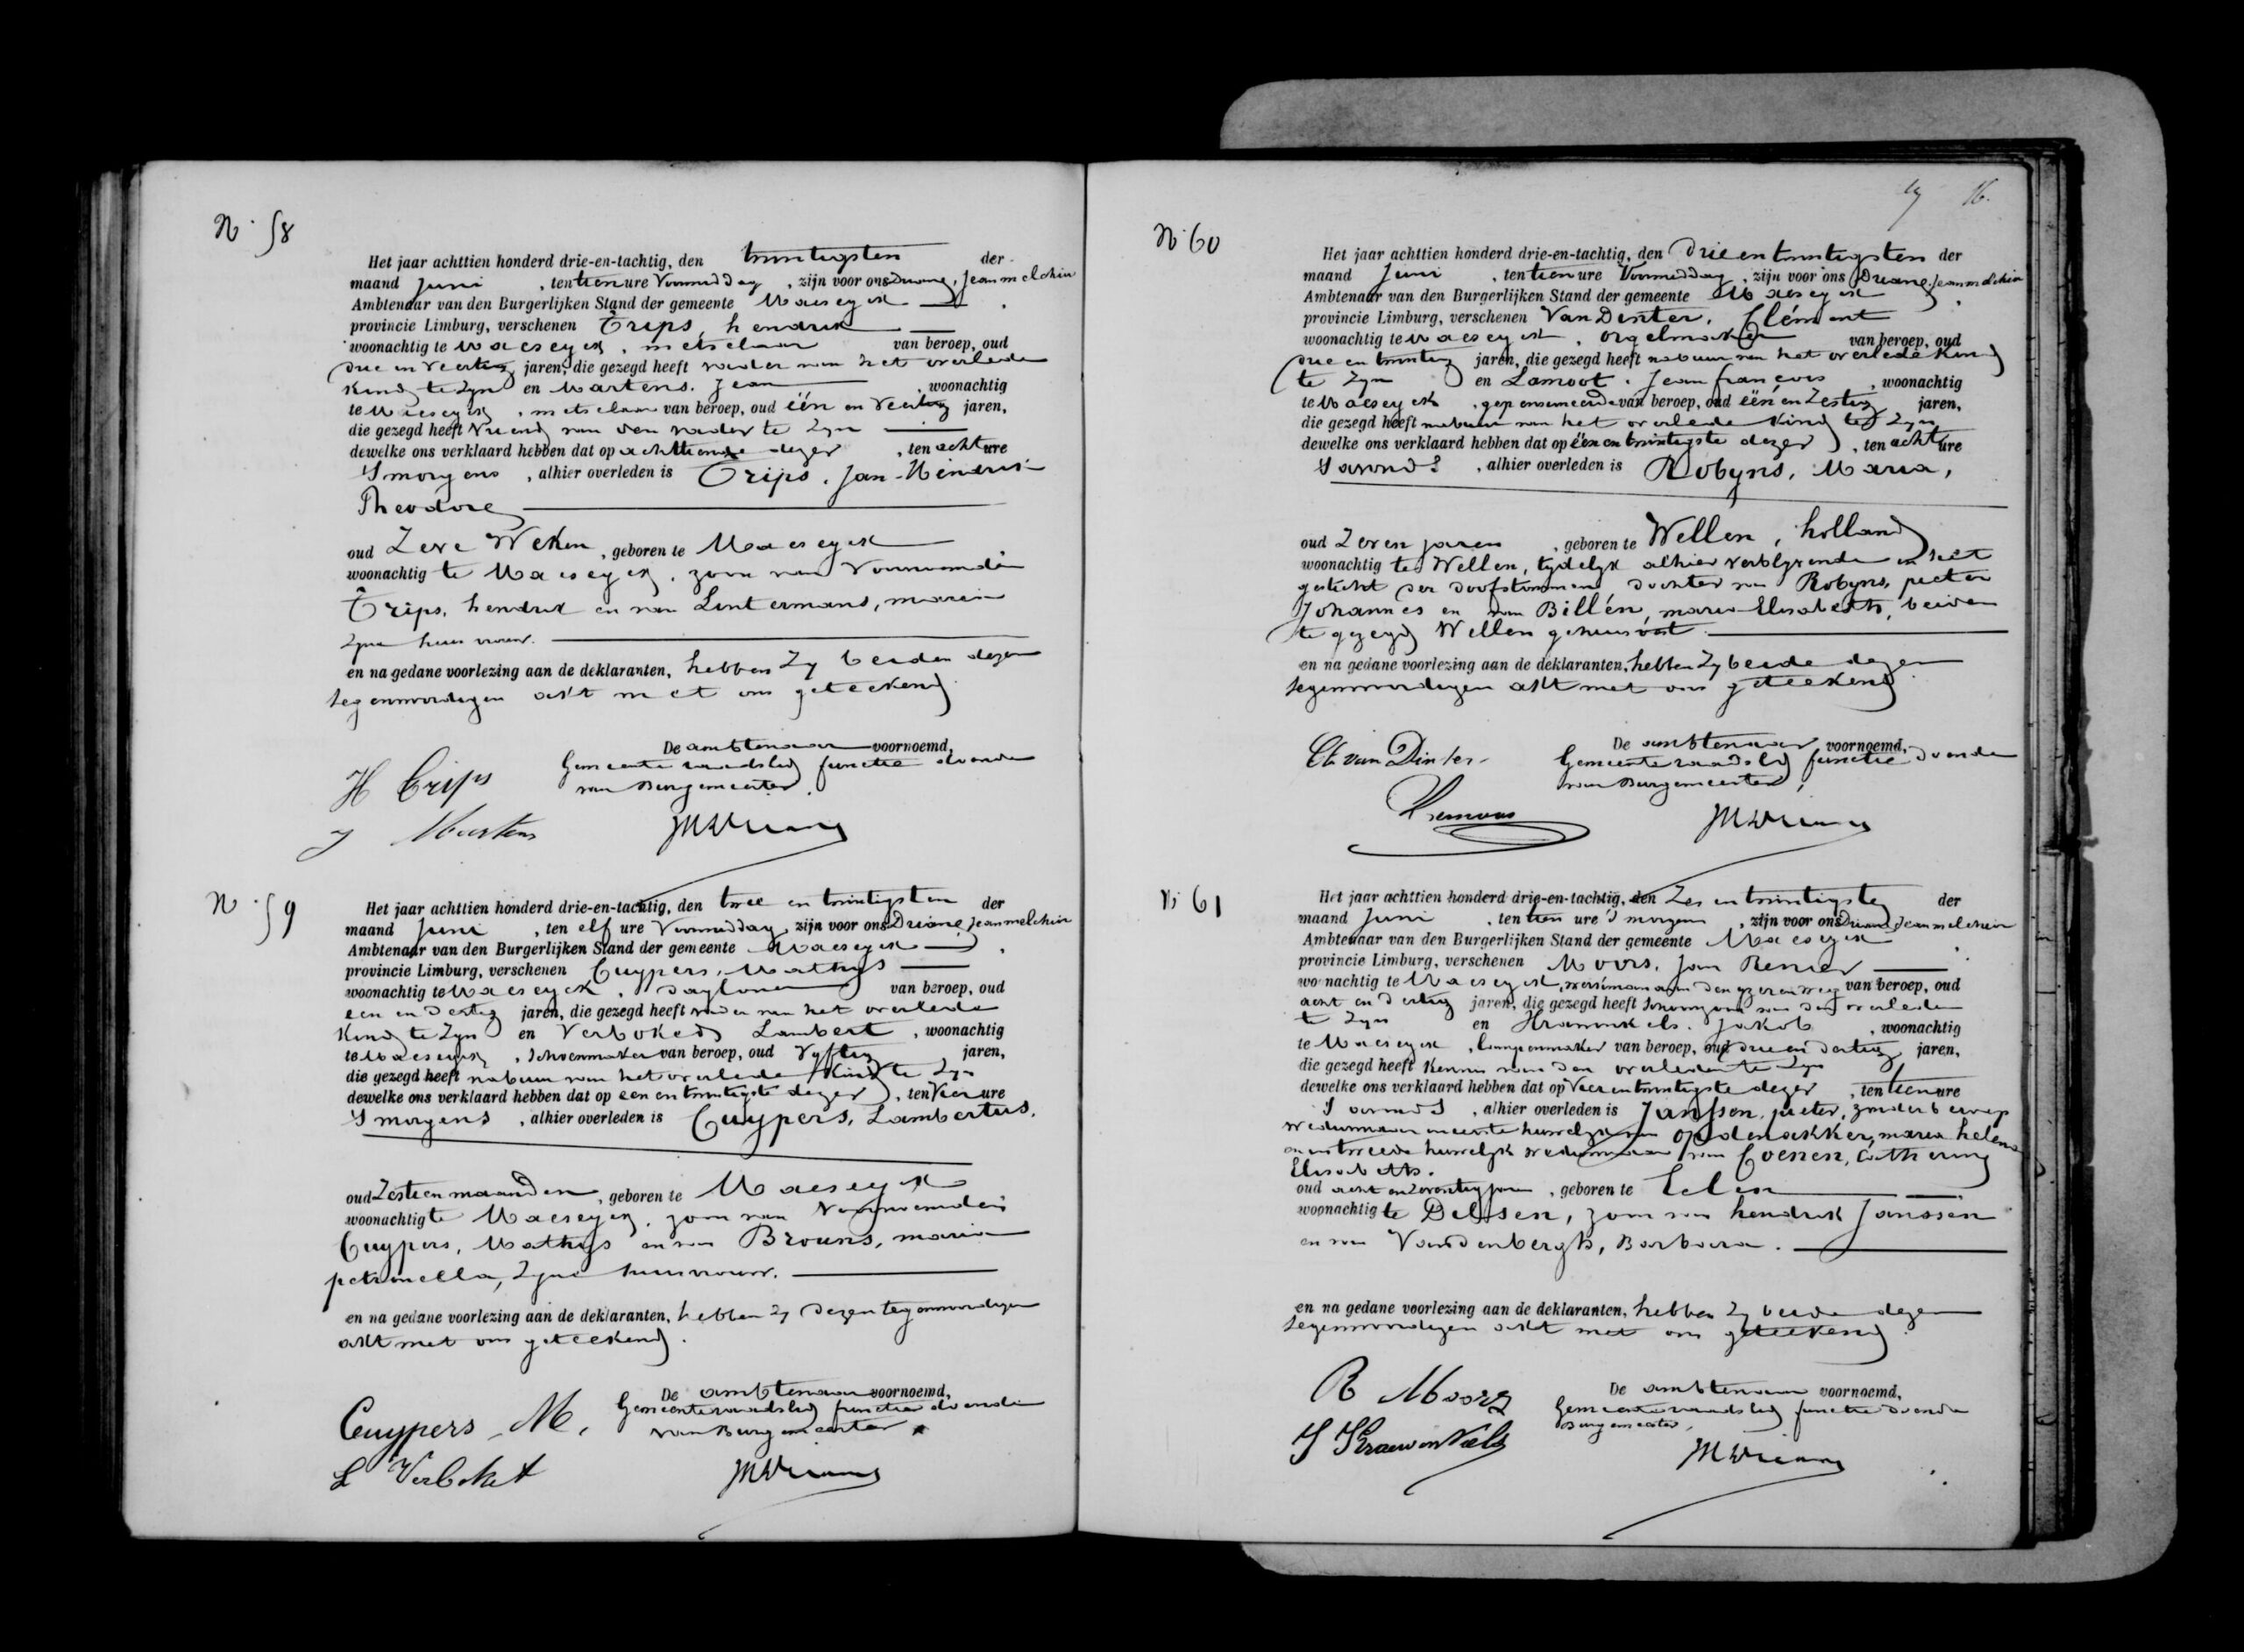 N° 58
Het jaar achttien honderd drie-en-tachtig, den twintigsten der
maand Juni, ten tien ure Voormiddag, zijn voor ons Driane, Jean melchior
Ambtenaar van den Burgerlijken Stand der gemeente Maeseyck
provincie Limburg, verschenen Trips, hendrik
woonachtig te Maeseyck, metselaar van beroep, oud
drie en Veertig jaren, die gezegd heeft vader van het overlede
Kind te zyn en Martens, Jean, woonachtig
te Maeseyck, metselaar van beroep, oud één en Veertig jaren,
die gezegd heeft Vriend van den vader te zyn
dewelke ons verklaard hebben dat op achttiende dezer, ten acht ure
Smorgens, alhier overleden is Trips, Jan-Hendrik
Theodore
oud Zeve Weken, geboren te Maeseyck
woonachtig te Maeseyck, zoon van Voornoemden
Trips, hendrik en van Lintermans, maria
zyne huisvrouw.
en na gedane voorlezing aan de deklaranten, hebben Zy beiden dezen
tegenwoordigen akt met ons geteekend.
De ambtenaar voornoemd,
Gemeenteraadslid functie doende
van Burgemeester,
H Trips
J Martens
JM Driane
N° 59
Het jaar achttien honderd drie-en-tachtig, den twee en twintigsten der
maand Juni, ten elf ure Voormiddag, zijn voor ons Driane, Jean melchior
Ambtenaar van den Burgerlijken Stand der gemeente Maeseyck
provincie Limburg, verschenen Cuypers, Mathys
woonachtig te Maeseyck, dagloner van beroep, oud
een en dertig jaren, die gezegd heeft vader van het overlede
Kind te Zyn en Verboket, Lambert, woonachtig
te Maeseyck, schoenmaker van beroep, oud Vyftig jaren,
die gezegd heeft nabuur van het overlede Kind te Zyn
dewelke ons verklaard hebben dat op een en twintigste dezer, ten Vier ure
Smorgens, alhier overleden is Cuypers, Lambertus,
oud Zestien maanden, geboren te Maeseyck
woonachtig te Maeseyck, zoon van Voornoemden
Cuypers, Mathys en van Brouns, maria
petronella, Zyne huisvrouw.
en na gedane voorlezing aan de deklaranten, hebben Zy dezen tegenwoordigen
akt met ons geteekend.
De ambtenaar voornoemd,
Gemeenteraadslid functie doende
van Burgemeester
Cuypers M.
L Verboket
JM Driane
16.
N° 60
Het jaar achttien honderd drie-en-tachtig, den Drie en twintigsten der
maand Juni, ten tien ure Voormiddag, zijn voor ons Driane, Jean melchior
Ambtenaar van den Burgerlijken Stand der gemeente Maeseyck
provincie Limburg, verschenen Van Dinter, Clément
woonachtig te Maeseyck, orgelmaker van beroep, oud
drie en twintig jaren, die gezegd heeft nabuur van het overlede Kind
te Zyn en Lamoot, Jean françois, woonachtig
te Maeseyck, gepensioneerde van beroep, oud één en Zestig jaren,
die gezegd heeft nabuur van het overlede Kind te Zyn
dewelke ons verklaard hebben dat op één en twintigste dezer, ten acht ure
S avonds, alhier overleden is Robyns, Maria,
oud Zeven jaren, geboren te Wellen, holland
woonachtig te Wellen, tydelyk alhier verblyvende in het
gesticht der doofstommen dochter van Robyns, pieter
Johannes en van Billén, maria Elisabeth, beiden
te gezegd Wellen gehuisvest.
en na gedane voorlezing aan de deklaranten, hebben Zy beide dezen
tegenwoordigen akt met ons geteekend.
De ambtenaar voornoemd,
Gemeenteraadslid functie doende
van Burgemeester,
Cl. van Dinter
JM Driane
N° 61
Het jaar achttien honderd drie-en-tachtig, den Zes en twintigste der
maand Juni, ten tien ure 's morgens, zijn voor ons Driane, Jean melchior
Ambtenaar van den Burgerlijken Stand der gemeente Maeseyck
provincie Limburg, verschenen Moors, Jan Renier
woonachtig te Maeseyck, werkman aan den yzeren weg van beroep, oud
acht en dertig jaren, die gezegd heeft schoonzoon van den overleden
te Zyn en Jakob, woonachtig
te Maeseyck, van beroep, oud drie en dertig jaren,
die gezegd heeft Kennis van den overleden te Zyn
dewelke ons verklaard hebben dat op Vier en twintigste dezer, ten tien ure
S avonds, alhier overleden is Janssen, pieter, zonder beroep
weduwnaar in eerste huwelyk van op denakker, maria helena
en in tweede huwelyk weduwnaar van Coenen, Catharina
Elisabeth.
oud acht en Zeventig jaren, geboren te Eelen
woonachtig te Dilsen, zoon van hendrik Janssen
en van Vandenbergh, Barbara.
en na gedane voorlezing aan de deklaranten, hebben Zy beide dezen
tegenwoordigen akt met ons geteekend.
De ambtenaar voornoemd,
Gemeenteraadslid functie doende
Burgemeester,
R Moors
JM Driane